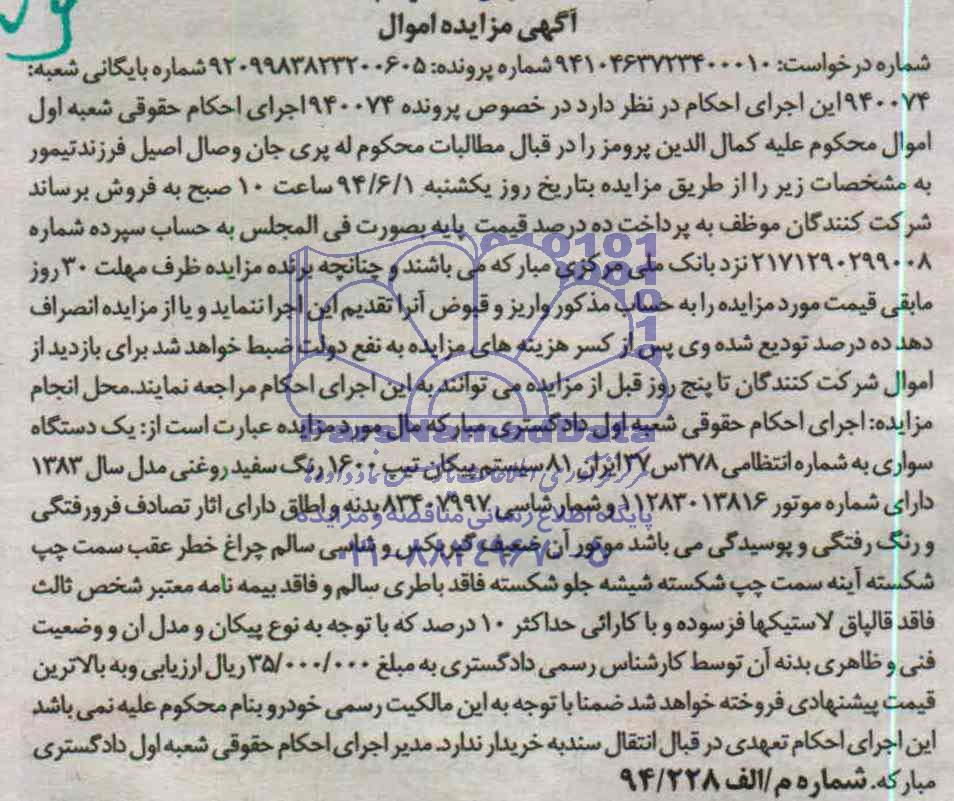 آگهی مزایده اموال
شماره درخواست: ۹۴۱۰۴۶۳۷۲۳۴۰۰۰۱۰ شماره پرونده: ۹۲۰۹۹۸۳۸۲۳۲۰۰۶۰۵ شماره بایگانی شعبه:
۹۴۰۰۷۴ این اجرای احکام در نظر دارد در خصوص پرونده ۹۴۰۰۷۴ اجرای احکام حقوقی شعبه اول
اموال محکوم علیه کمال الدین پرومز را در قبال مطالبات محکوم له پری جان وصال اصیل فرزند تیمور
به مشخصات زیر را از طریق مزایده بتاریخ روز یکشنبه ۹۴/۶/۱ ساعت ۱۰ صبح به فروش برساند
شرکت کنندگان موظف به پرداخت ده درصد قیمت پایه بصورت فی المجلس به حساب سپرده شماره
۲۱۷۱۲۹۰۲۹۹۰۰۸ نزد بانک ملی مرکزی مبارکه می باشند و چنانچه برنده مزایده ظرف مهلت ۳۰ روز
مابقی قیمت مورد مزایده را به حساب مذکور واریز و قبوض آنرا تقدیم این اجرا ننماید و یا از مزایده انصراف
دهد ده درصد تودیع شده وی پس از کسر هزینه های مزایده به نفع دولت ضبط خواهد شد برای بازدید از
اموال شرکت کنندگان تا پنج روز قبل از مزایده می توانند به این اجرای احکام مراجعه نمایند.محل انجام
مزایده: اجرای احکام حقوقی شعبه اول دادگستری مبارکه مال مورد مزایده عبارت است از: یک دستگاه
سواری به شماره انتظامی ۳۷۸س۳۷ ایران ۸۱ سیستم پیکان تیپ ۱۶۰۰ رنگ سفید روغنی مدل سال ۱۳۸۳
دارای شماره موتور ۱۱۲۸۳۰۱۳۸۱۶ و شمار شاسی ۸۳۴۰۷۹۹۷ بدنه و اطاق دارای اثار تصادف فرورفتگی
و رنگ رفتگی و پوسیدگی می باشد موتور آن ضعیف گیربکس و شاسی سالم چراغ خطر عقب سمت چپ
شکسته آینه سمت چپ شکسته شیشه جلو شکسته فاقد باطری سالم و فاقد بیمه نامه معتبر شخص ثالث
فاقد قالپاق لاستیکها فرسوده و با کارائی حداکثر ۱۰ درصد که با توجه به نوع پیکان و مدل ان و وضعیت
فنی و ظاهری بدنه آن توسط کارشناس رسمی دادگستری به مبلغ ۳۵/۰۰۰/۰۰۰ ریال ارزیابی وبه بالاترین
قیمت پیشنهادی فروخته خواهد شد ضمنا با توجه به این مالکیت رسمی خودرو بنام محکوم علیه نمی باشد
این اجرای احکام تعهدی در قبال انتقال سندبه خریدار ندارد. مدیر اجرای احکام حقوقی شعبه اول دادگستری
مبارکه. شماره م/الف ۹۴/۲۲۸
ParsNamadData
پایگاه اطلاع رسانی مناقصه و مزایده
۰۲۱-۸۸۳۴۹۶۷۰-۵